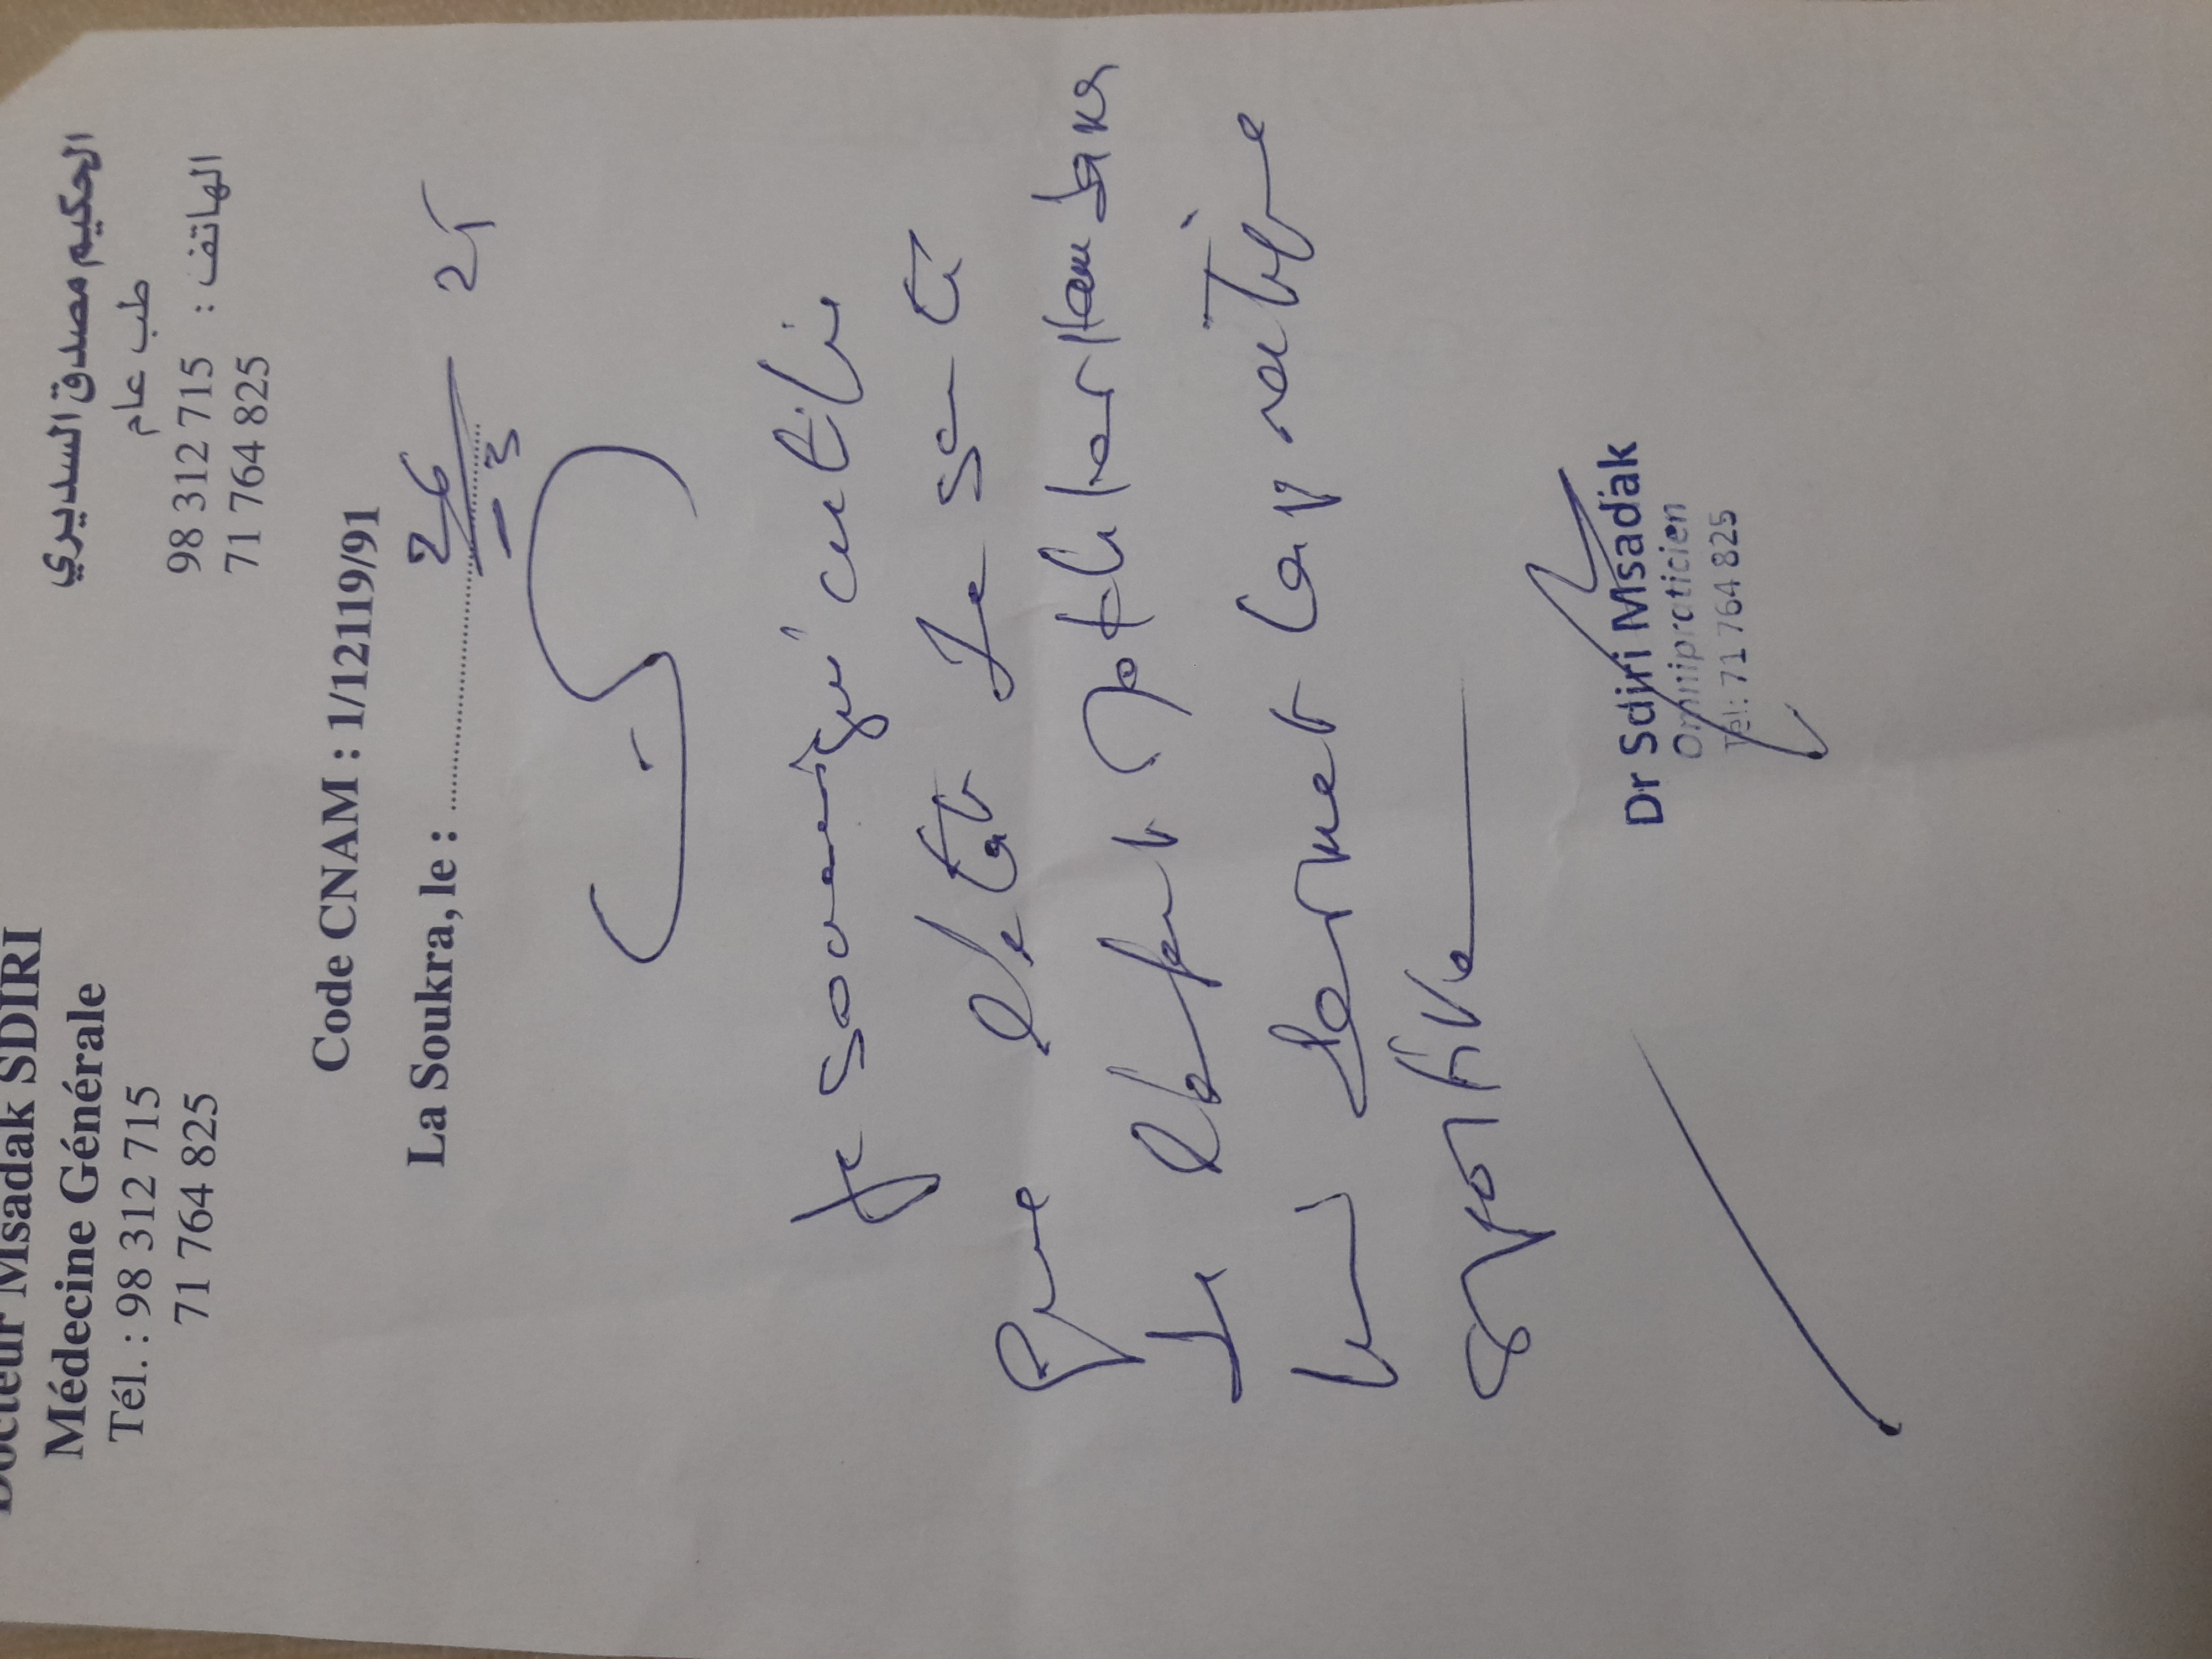 Docteur Msadak SDIRI
Médecine Générale
Tél. : 98 312 715
71 764 825
الحكيم مصدق السديري
طب عام
الهاتف : 98 312 715
71 764 825
Code CNAM : 1/12119/91
La Soukra, le : 26 - 3 25
Je soussigné certifie
que l'état de santé
de l'enfant
lui permet la pratique
sportive
Dr Sdiri Msadak
Omnipraticien
Tel: 71 764 825